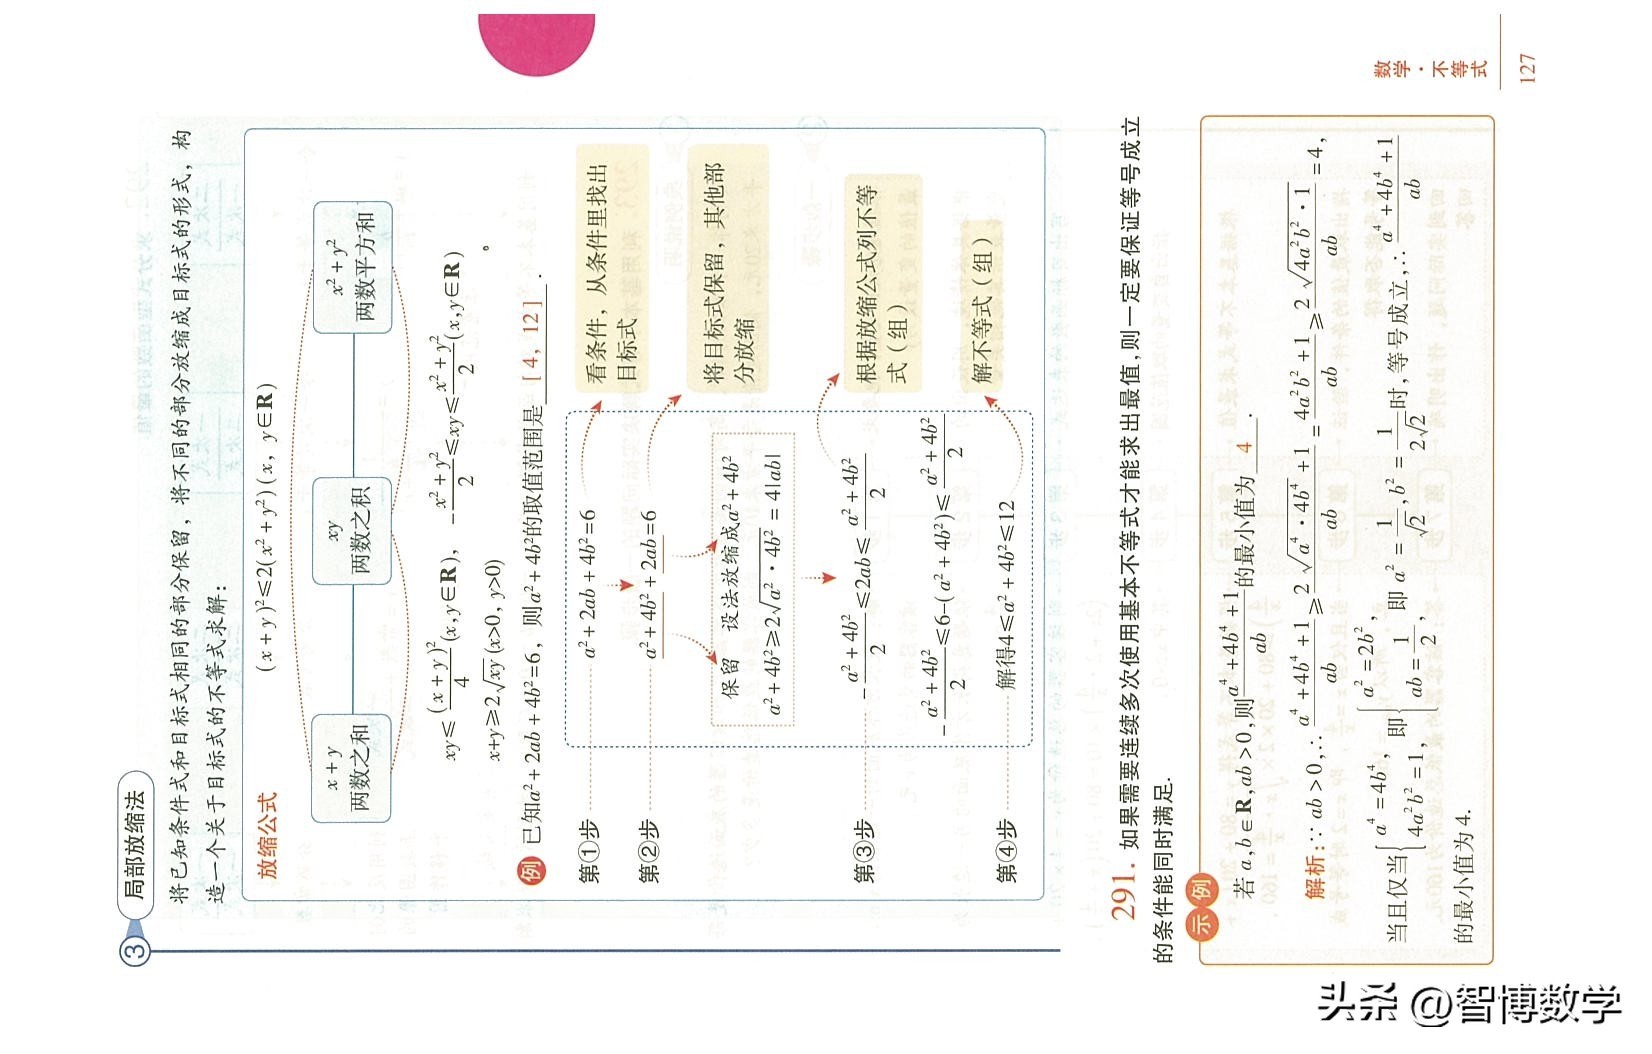 ③ 局部放缩法
将已知条件式和目标式相同的部分保留，将不同的部分放缩成目标式的形式，构
造一个关于目标式的不等式求解：
放缩公式
(x+y)²≤2(x²+y²)(x, y∈R)
x+y
两数之和
xy
两数之积
x²+y²
两数平方和
xy≤(x+y)²/4(x,y∈R)， -(x²+y²)/2≤xy≤(x²+y²)/2(x,y∈R)
x+y≥2√xy(x>0, y>0) 。
例 已知a²+2ab+4b²=6，则a²+4b²的取值范围是 [4, 12] .
第①步 a²+2ab+4b²=6 看条件，从条件里找出
目标式
第②步 a²+4b²+2ab=6 将目标式保留，其他部
分放缩
保留 设法放缩成a²+4b²
a²+4b²≥2√(a²·4b²)=4|ab|
第③步 -(a²+4b²)/2≤2ab≤(a²+4b²)/2 根据放缩公式列不等
式（组）
-(a²+4b²)/2≤6-(a²+4b²)≤(a²+4b²)/2
第④步 解得4≤a²+4b²≤12 解不等式（组）
291. 如果需要连续多次使用基本不等式才能求出最值,则一定要保证等号成立
的条件能同时满足.
示例
若 a,b∈R,ab>0,则(a⁴+4b⁴+1)/ab的最小值为 4 .
解析:∵ab>0,∴(a⁴+4b⁴+1)/ab≥(2√(a⁴·4b⁴)+1)/ab=(4a²b²+1)/ab≥2√(4a²b²·1)/ab=4,
当且仅当{a⁴=4b⁴, 4a²b²=1, 即{a²=2b², ab=1/2, 即 a²=1/√2,b²=1/(2√2)时,等号成立,∴(a⁴+4b⁴+1)/ab
的最小值为 4.
数学·不等式
127
头条 @智博数学